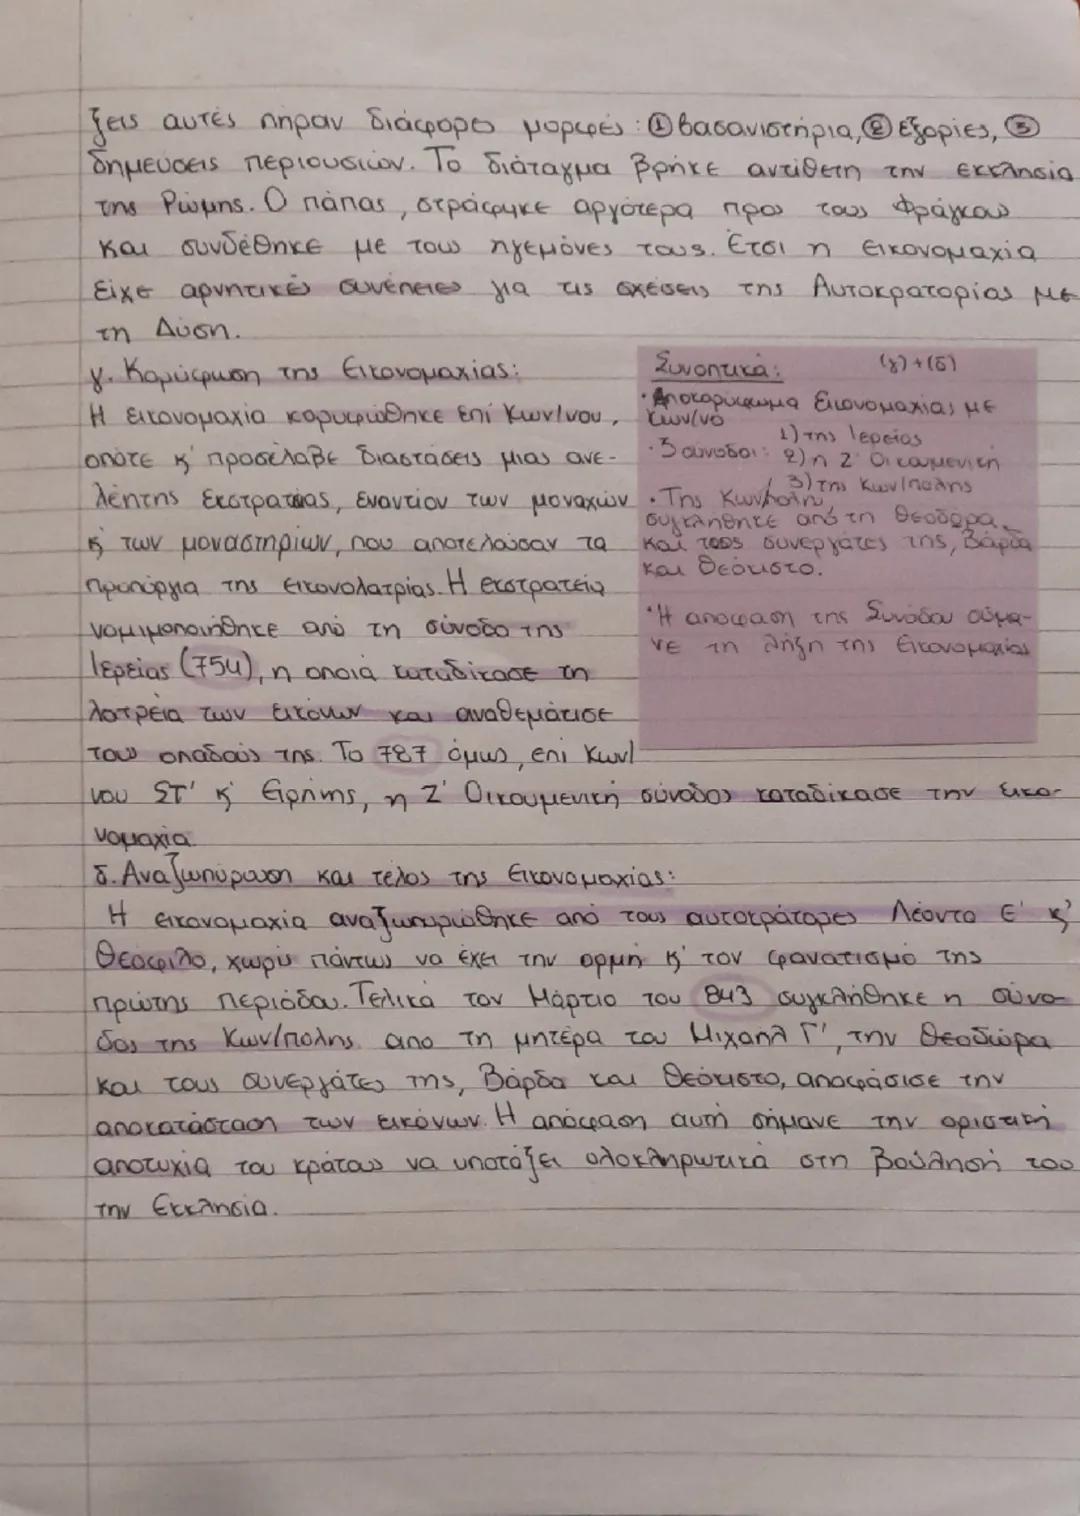 ξεις αυτές πήραν διάφορες μορφές: ① βασανιστήρια, ② εξορίες, ③
δημεύσεις περιουσιών. Το διάταγμα βρήκε αντίθετη την εκκλησία
της Ρώμης. Ο πάπας, στράφηκε αργότερα προς τους Φράγκους
και συνδέθηκε με τους ηγεμόνες τους. Έτσι η εικονομαχία
είχε αρνητικές συνέπειες για τις σχέσεις της Αυτοκρατορίας με
τη Δύση.
γ. Κορύφωση της Εικονομαχίας:
Η εικονομαχία κορυφώθηκε επί Κων/νου,
οπότε κ' προσέλαβε διαστάσεις μιας ανε-
λέητης εκστρατείας, εναντίον των μοναχών
κ' των μοναστηριών, που αποτελούσαν τα
προπύργια της εικονολατρίας. Η εκστρατεία
νομιμοποιήθηκε από τη σύνοδο της
Ιερείας (754), η οποία καταδίκασε τη
λατρεία των εικόνων και αναθεμάτισε
τους οπαδούς της. Το 787 όμως, επί Κων/
νου ΣΤ' κ' Ειρήνης, η Ζ' Οικουμενική σύνοδος καταδίκασε την εικο-
νομαχία.
Συνοπτικά: (γ)+(δ)
· Αποκορύφωμα Εικονομαχίας με
Κων/νο
· 3 σύνοδοι: 1) της Ιερείας
2) η Ζ' Οικουμενική
3) της Κων/πολης
· Της Κων/πολη
συγκλήθηκε από τη Θεοδώρα
και τους συνεργάτες της, Βάρδα
και Θεόκτιστο.
· Η απόφαση της Συνόδου σήμα-
νε τη λήξη της Εικονομαχίας
δ. Αναζωπύρωση και τέλος της Εικονομαχίας:
Η εικονομαχία αναζωπυρώθηκε από τους αυτοκράτορες Λέοντα Ε' κ'
Θεόφιλο, χωρίς πάντως να έχει την ορμή κ' τον φανατισμό της
πρώτης περιόδου. Τελικά τον Μάρτιο του 843 συγκλήθηκε η σύνο-
δος της Κων/πολης απο τη μητέρα του Μιχαήλ Γ', την Θεοδώρα
και τους συνεργάτες της, Βάρδα και Θεόκιστο, αποφάσισε την
αποκατάσταση των εικόνων. Η απόφαση αυτή σήμανε την οριστική
αποτυχία του κράτους να υποτάξει ολοκληρωτικά στη βούλησή του
την Εκκλησία.